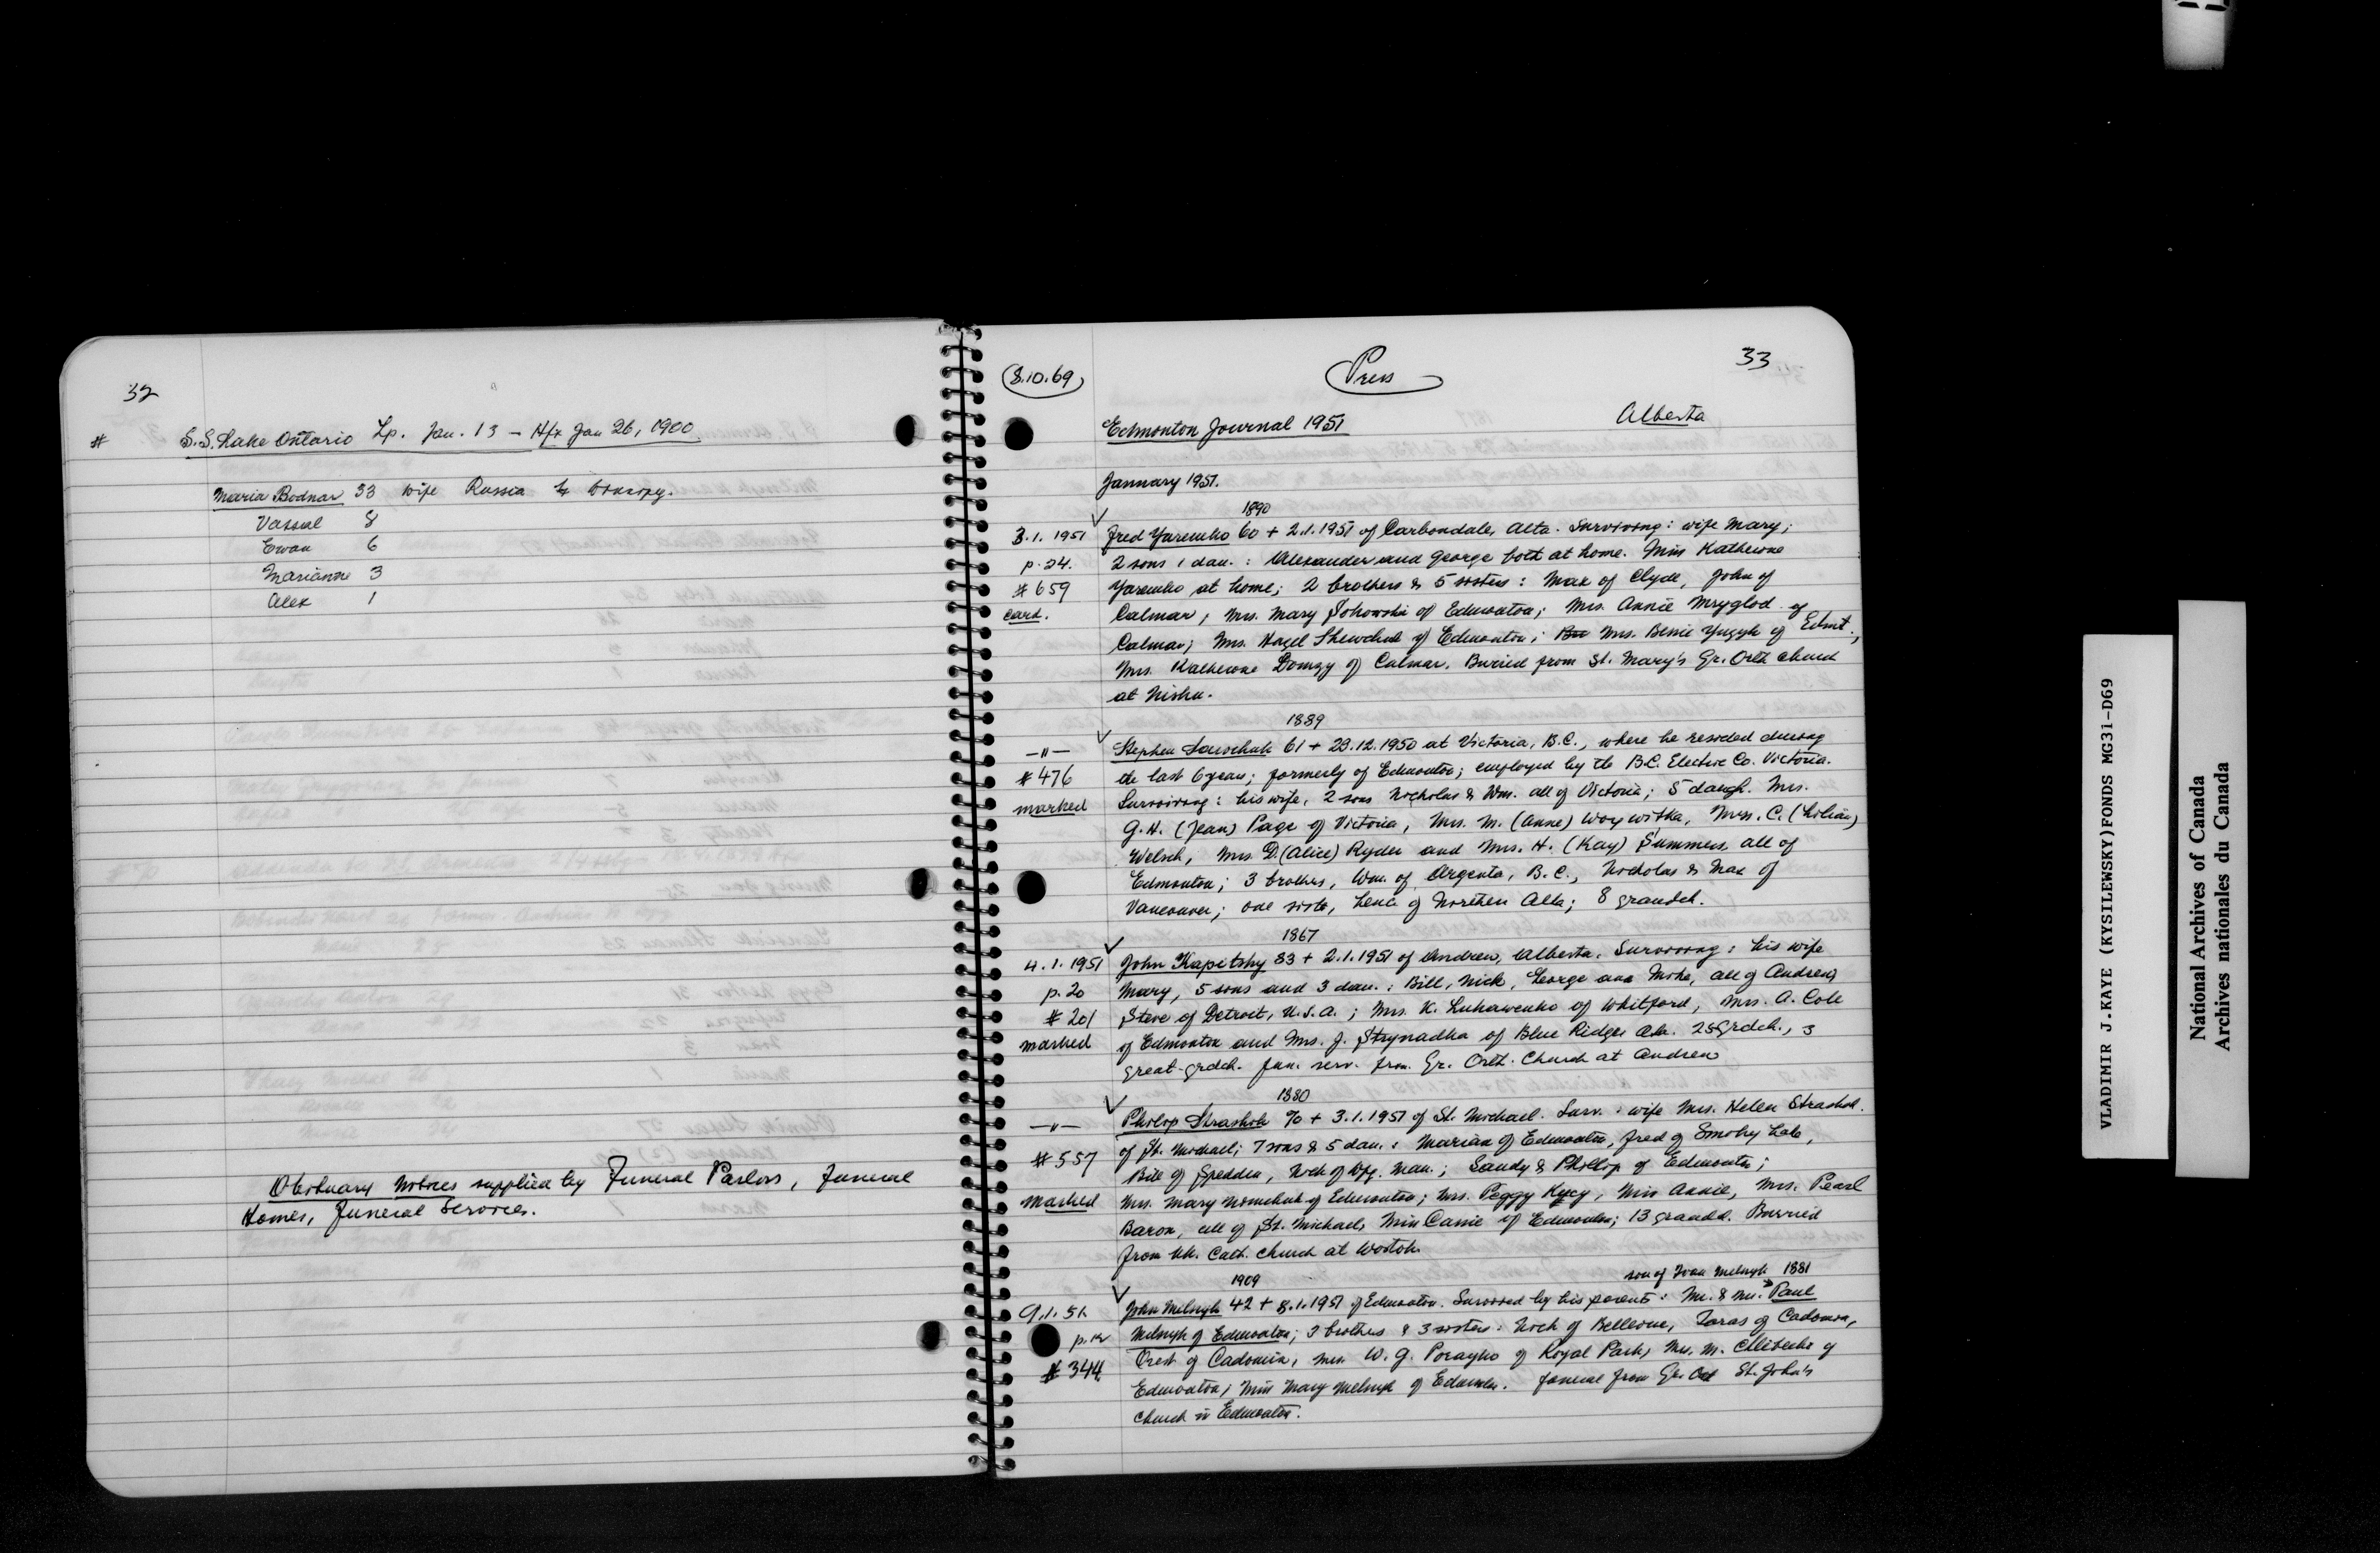 32
# S.S. Lake Ontario Lp. Jan. 13 – Hfx Jan 26, 1900
Maria Bodnar 33 wife Russia
Vassal 8
Ewan 6
Marianne 3
Alex 1
Obituary Notices supplied by Funeral Parlors, Funeral
Homes, Funeral Services.
33
(8.10.69) Press
Edmonton Journal 1951 Alberta
January 1951.
1890
3.1.1951 Fred Yaremko 60 + 2.1.1951 of Carbondale, Alta. Surviving: wife Mary;
p.24. 2 sons 1 dau.: Alexander and George both at home. Miss Katherine
#659 Yaremko at home; 2 brothers & 5 sisters: Max of Clyde, John of
card. Calmar, Mrs. Mary Sokowski of Edmonton; Mrs. Annie Mryglod of
Calmar; Mrs. Hazel Shewchuk of Edmonton; Mrs. Bessie Yuzyk of Edmt.,
Mrs. Katherine of Calmar. Buried from St. Mary's Gr. Orth church
at Nisku.
1889
—"— Stephen Sawchuk 61 + 29.12.1950 at Victoria, B.C., where he resided during
#476 the last 6 years; formerly of Edmonton; employed by the B.C. Electric Co. Victoria.
marked Surviving: his wife, 2 sons Nicholas & Wm. all of Victoria; 5 daugh. Mrs.
G.H. (Jean) Page of Victoria, Mrs. M. (Anne) Woywitka, Mrs. C. (Lilian)
Welsch, Mrs D. (Alice) Ryder and Mrs. H. (Kay) Summers, all of
Edmonton; 3 brothers, Wm. of Argenta, B.C., Nicholas & Max of
Vancouver; one sister, Lena of Northern Alta; 8 grandch.
1867
4.1.1951 John Kapitsky 83 + 2.1.1951 of Andrew, Alberta. Surviving: his wife
p.20 Mary, 5 sons and 3 dau.: Bill, Nick, George and Mike, all of Andrew,
#201 Steve of Detroit, U.S.A.; Mrs. K. Lukawenko of Whitford, Mrs. A. Cole
marked of Edmonton and Mrs. J. Strynadka of Blue Ridge, Alta. 25 grdch., 3
great-grdch. Fun. serv. from Gr. Orth. Church at Andrew
1880
—"— Philip Strashok 70 + 3.1.1951 of St. Michael. Surv.: wife Mrs. Helen Strashok
#557 of St. Michael; 7 sons & 5 dau.: Marian of Edmonton, Fred of Smoky Lake,
Bill of Spedden, Nick of Wpg. Man.; Sandy & Phillip of Edmonton;
marked Mrs. Mary of Edmonton; Mrs. Peggy Kycy, Miss Annie, Mrs. Pearl
Baron, all of St. Michael, Miss Cassie of Edmonton; 13 grandch. Burried
from Uk. Cath. church at Wostok.
1909 son of Ivan Melnyk 1881
9.1.51. John Melnyk 42 + 8.1.1951 of Edmonton. Survived by his parents: Mr. & Mrs. Paul
Melnyk of Edmonton; 3 brothers & 3 sisters: Nick of Bellevue, Taras of Cadomin,
#344 Orest of Cadomin, Mrs W.G. Porayko of Royal Park, Mrs. M. of
Edmonton; Miss Mary Melnyk of Edmonton. Funeral from Gr. Ort St. John's
church in Edmonton.
VLADIMIR J.KAYE (KYSILEWSKY)FONDS MG31-D69
National Archives of Canada
Archives nationales du Canada